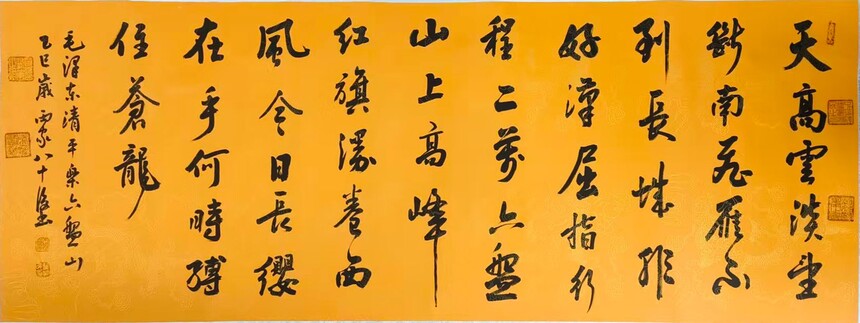 天高雲淡望
斷南飛雁不
到長城非
好漢屈指行
程二萬六盤
山上高峰
紅旗漫卷西
風今日長纓
在手何時縛
住蒼龍
毛澤东清平樂六盤山
乙巳歲八十